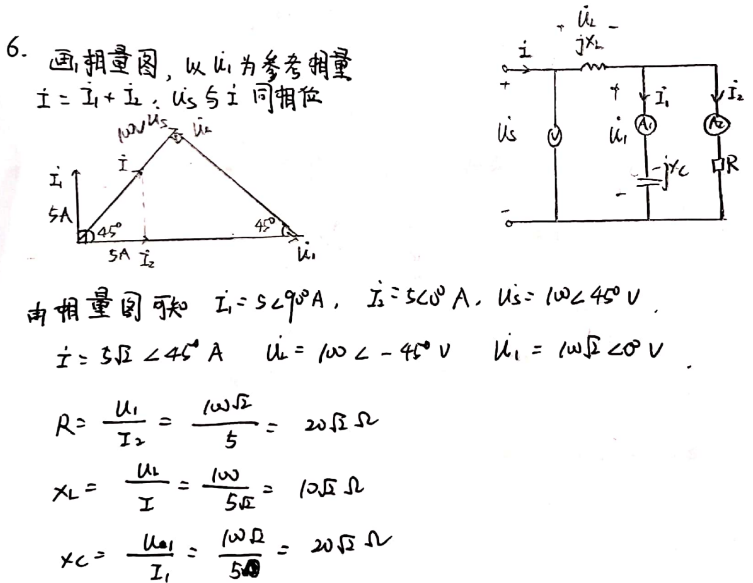 6. 画相量图，以 U̇₁ 为参考相量
İ = İ₁ + İ₂ . U̇s 与 İ 同相位
100V U̇s U̇L
İ
İ₁
5A
45° 45°
5A İ₂ U̇₁
+ U̇L -
jXL
İ
+ + İ₁ İ₂
U̇s V U̇₁ A₁ A₂
-jXc R
- -
由相量图可知 İ₁ = 5∠90° A , İ₂ = 5∠0° A . U̇s = 100∠45° V .
İ = 5√2 ∠45° A U̇L = 100∠-45° V U̇₁ = 100√2 ∠0° V .
R = U₁/I₂ = 100√2/5 = 20√2 Ω
XL = UL/I = 100/5√2 = 10√2 Ω
Xc = U₁/I₁ = 100√2/5 = 20√2 Ω